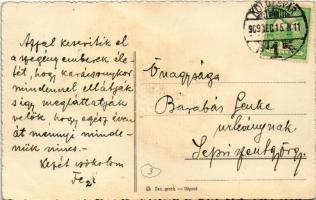 Azzal keserítik el
a szegény emberek éle-
tét, hogy karácsonykor
mindennel ellátják
s így megláttatják
velök, hogy egész éven
át mennyi minde-
nük nincs. -
Kezét csókolom
Fezl
KOLOZSVÁR
909 DEC 15 N 11
Őnagysága
Barabás Genke
urleánynak
Sepsiszentgyörgy.
3
Ges. gesch. - Déposé